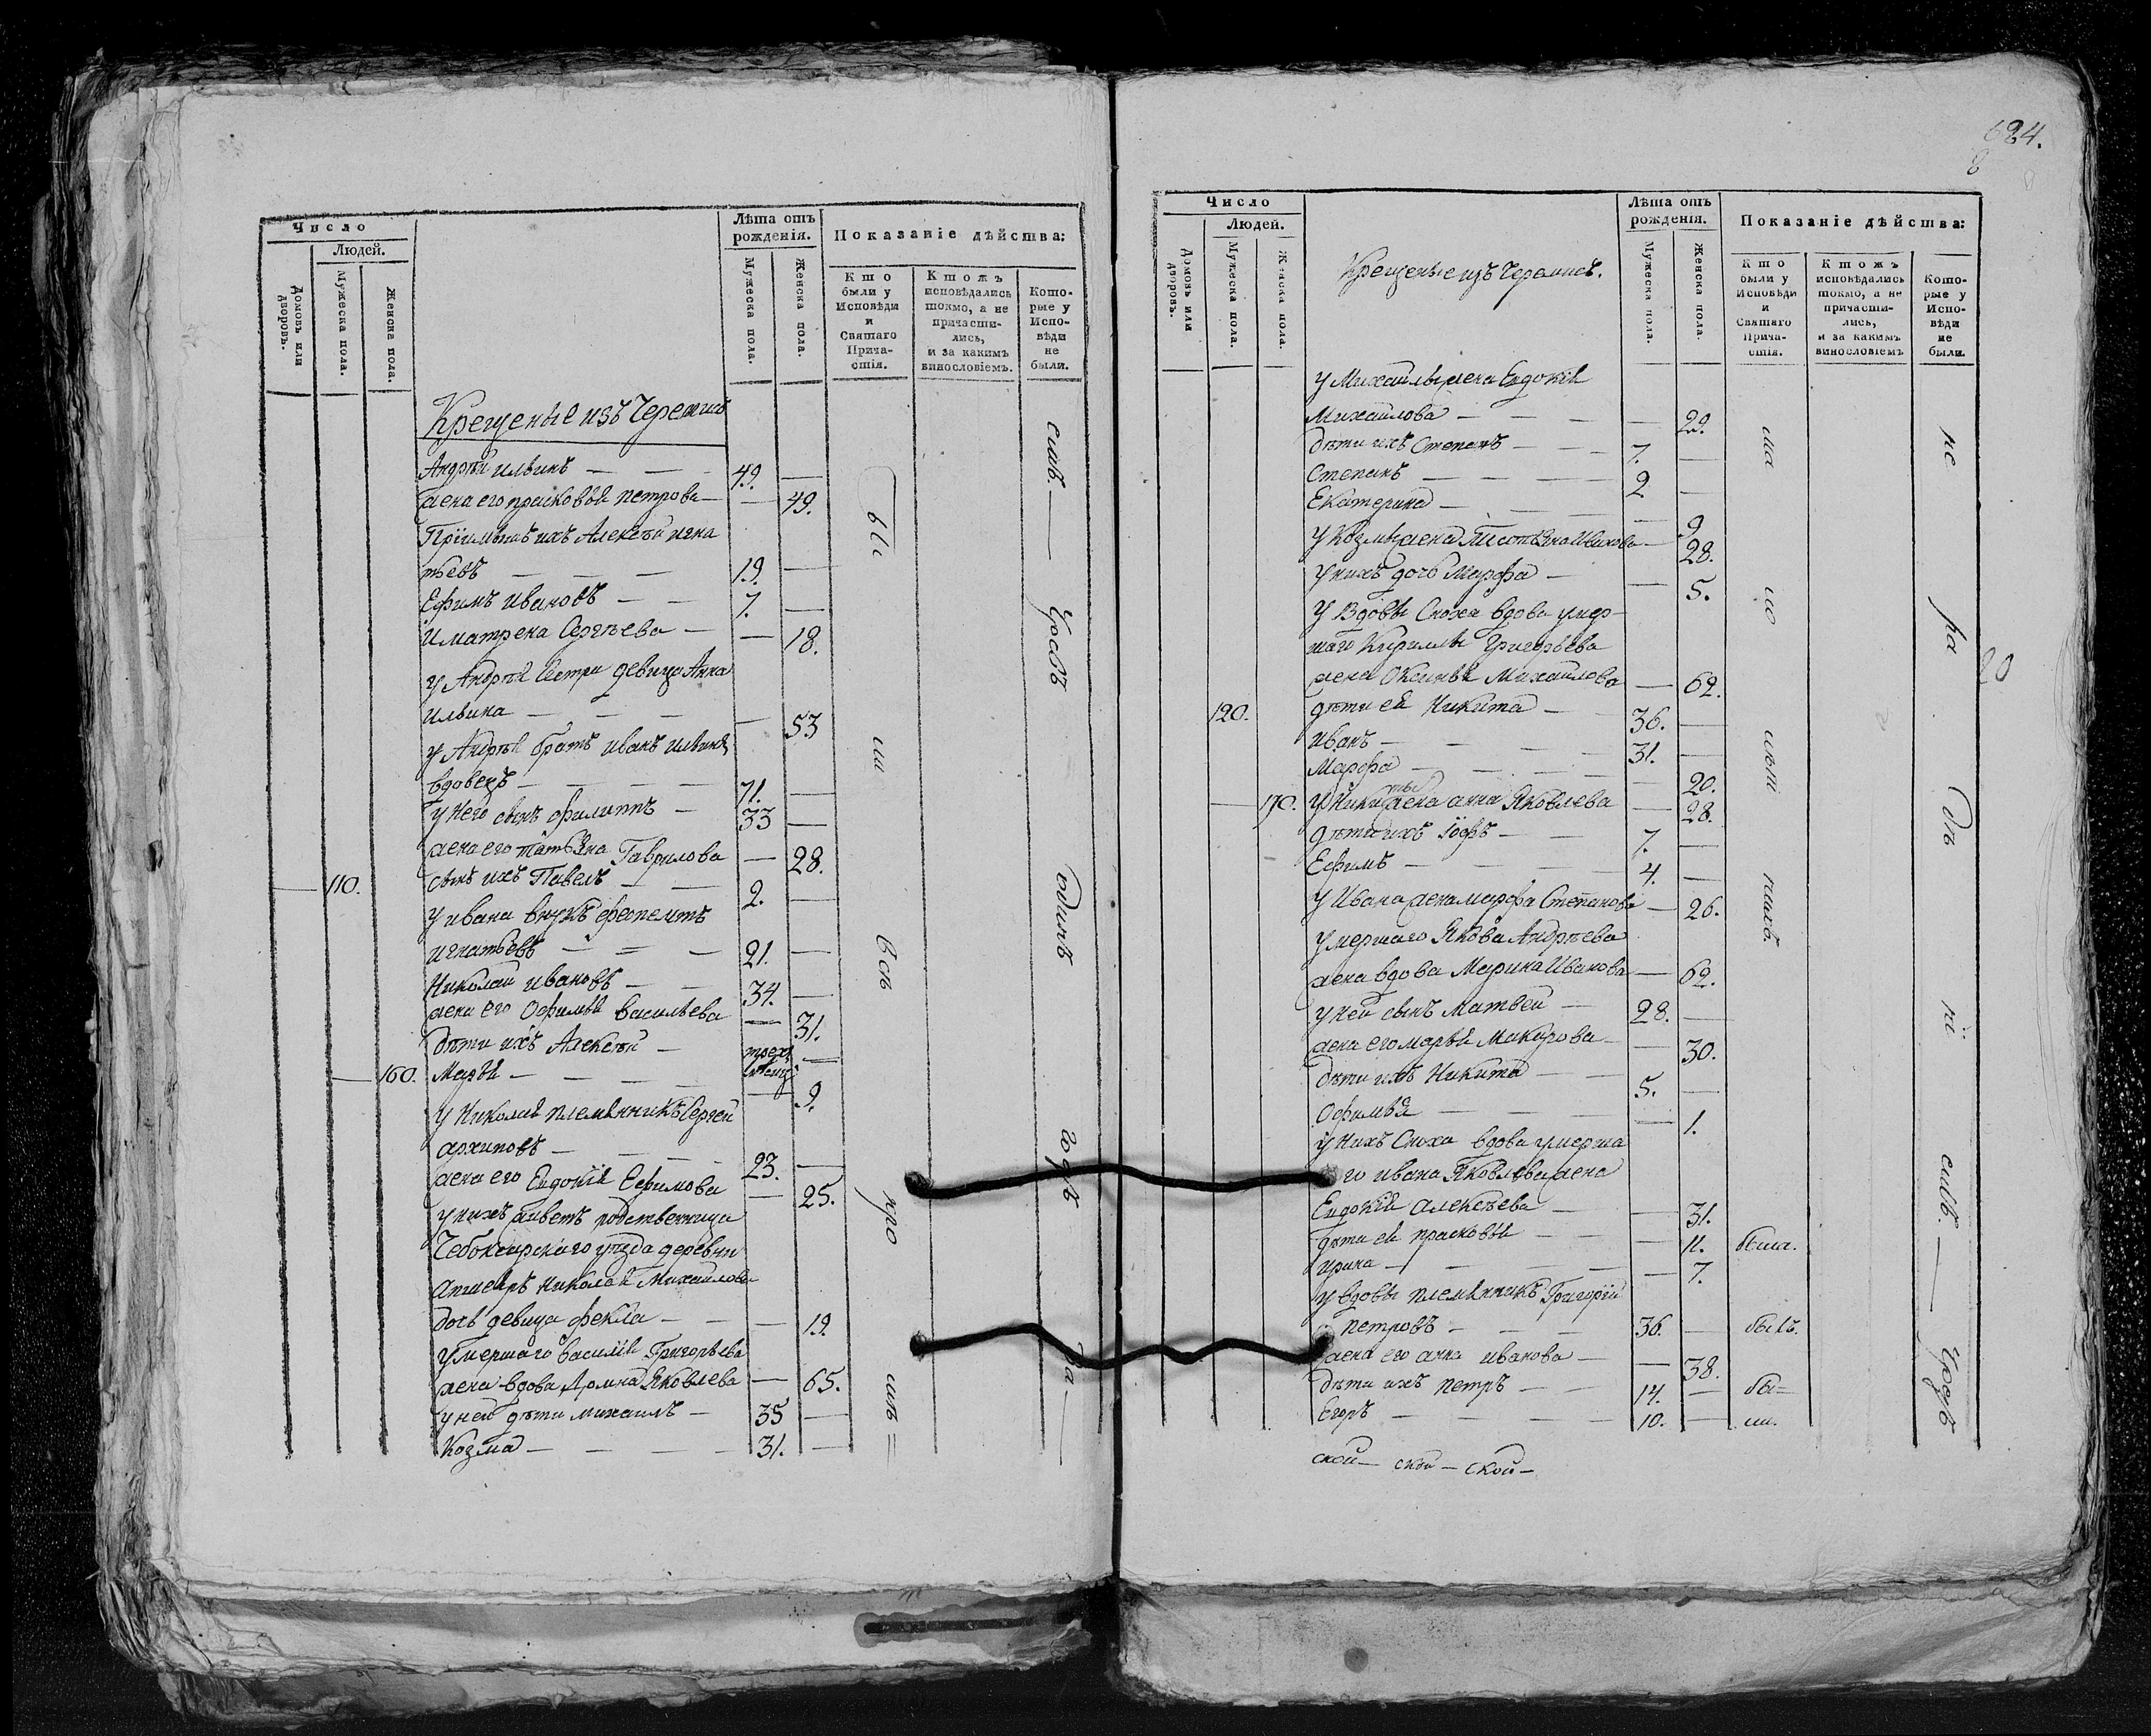 Число
Людей.
Домовъ или дворовъ.
Мужеска пола.
Женска пола.
Лѣта отъ рожденія.
Мужеска пола.
Женска пола.
Показаніе дѣйства:
Кто были у Исповѣди и Святаго Причастія.
Ктожъ исповѣдались токмо, а не причастились, и за какимъ винословіемъ.
Которые у Исповѣди не были.
Крещеные изъ Черемисъ
Андрей Ильинъ — — 49. —
жена его прасковья петрова — — 49.
Пріимышъ ихъ Алексѣй игна
тьевъ — — — 19. —
Ефимъ Ивановъ — — 7. —
И матрена Сергѣева — — 18.
у Андрея Сестра девица Анна
Ильина — — — — 53
у Андрея братъ иванъ ильинъ
вдовецъ — — — — 71. —
у него сынъ филиппъ — 33 —
жена его татьяна Гаврилова — 28.
— 110. сынъ ихъ Павелъ — — 2. —
у ивана внукъ феопемптъ
игнатьевъ — — — 21. —
Николай ивановъ — — 34. —
жена его Офимья васильева — 31.
дѣти ихъ Алексѣй — трехъ месяц —
— 160. Марья — — — — — 9.
у Николая племянникъ Сергей
архиповъ — — — — 23. —
жена его Евдокія Ефимова — 25.
у нихъ живетъ родственница
Чебоксарского уѣзда деревни
Николая Михайлова
дочь девица фекла — — — 19.
умершаго василія Григорьева
жена вдова Яковлева — 65.
у ней дѣти михаилъ — 35 —
Козма — — — — 31. —
бы
ли
всѣ
кро
мѣ =
симъ. —
Чосъ
одинъ
годъ
ва —
624.
8
Число
Людей.
Домовъ или дворовъ.
Мужеска пола.
Женска пола.
Крещеные изъ Черемисъ.
Лѣта отъ рожденія.
Мужеска пола.
Женска пола.
Показаніе дѣйства:
Кто были у Исповѣди и Святаго Причастія.
Ктожъ исповѣдались токмо, а не причастились, и за какимъ винословіемъ.
Которые у Исповѣди не были.
у Михайлы жена Евдокія
Михайлова — — — — 29.
дѣти ихъ Степанъ — — — 7. —
Степанъ — — — — 2 —
Екатерина — — — — 9
у Козмы жена Татьяна Иванова — 28.
у нихъ дочь Марфа — — 5.
у вдовы Сноха вдова умер-
шаго Кирилы Григорьева
жена Оксинья Михайлова — 62.
120. дѣти ея Никита — — 36. —
иванъ — — — — 31. —
Марфа — — — — — 20.
— 170. у Никиты жена анна Яковлева — 28.
дѣти ихъ Іофъ — — 7. —
Ефимъ — — — — 4. —
у Ивана жена марфа Степанова — 26.
умершаго Якова Андрѣева
жена вдова Марина Иванова — 62.
у ней сынъ матвей — 28. —
жена его марья Макарова — 30.
дѣти ихъ Никита — — 5. —
Офимья — — — — 1.
у нихъ Сноха вдова умерша
го ивана Яковлева жена
Евдокія алексѣева — — 31.
дѣти ея прасковья — — — 11. была.
ирина — — — — — 7.
у вдовы племянникъ Григорій
петровъ — — — 36. — былъ.
жена его анна иванова — — 38.
дѣти ихъ петръ — — 14. — бы=
Егоръ — — — — 10. — ли.
ской — ской — ской —
20